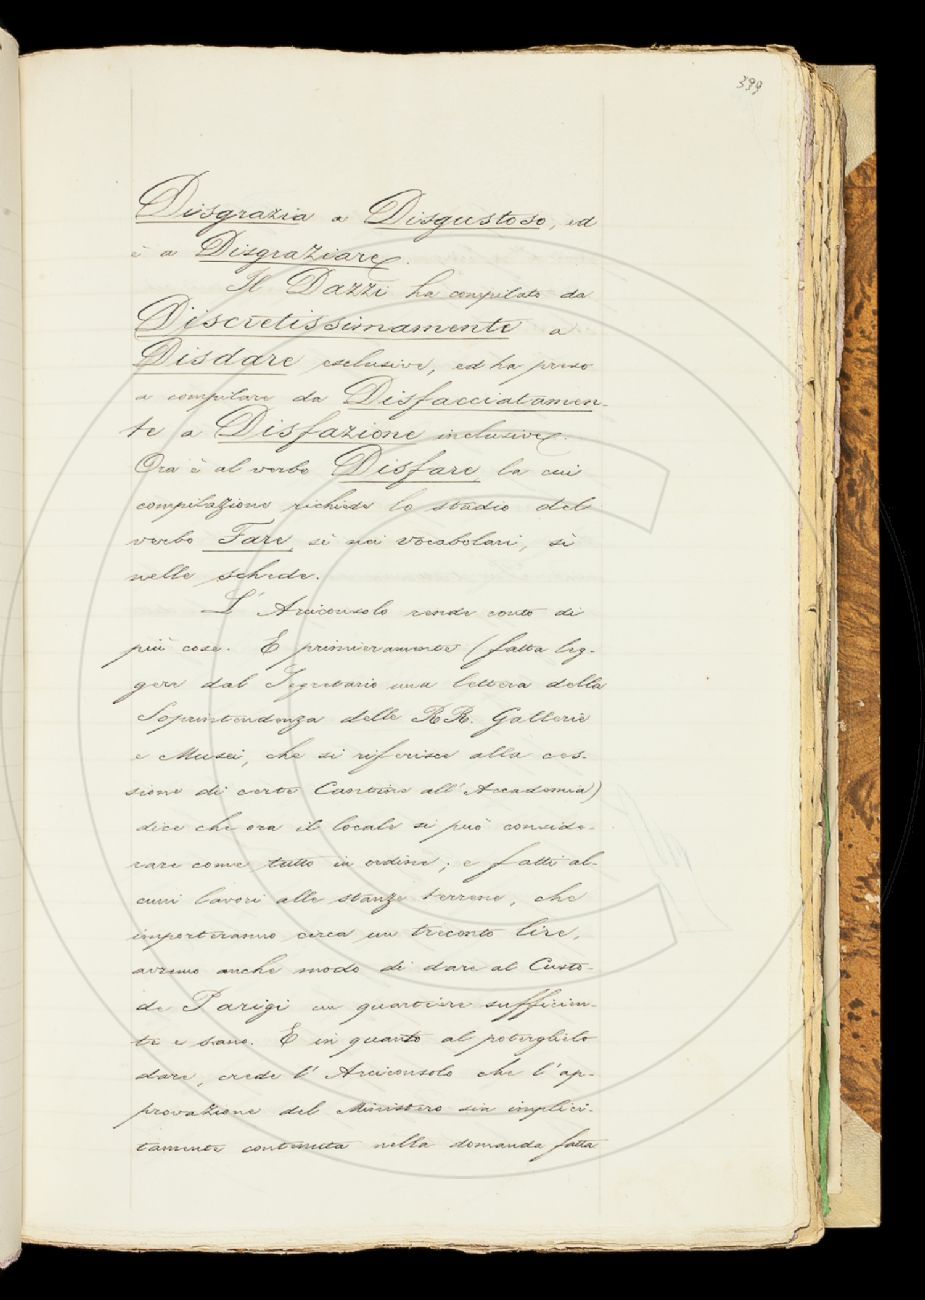 399
Disgrazia a Disgustoso, ed
è a Disgraziare.
Il Dazzi ha compilato da
Discretissimamente a
Disdare esclusive, ed ha preso
a compilare da Disfacciatamen-
te a Disfazione inclusive.
Ora è al verbo Disfare, la cui
compilazione richiede lo studio del
verbo Fare, sì nei vocabolari, sì
nelle schede.
L'Arciconsolo rende conto di
più cose. E primieramente (fatta leg-
gere dal Segretario una lettera della
Soprintendenza delle RR. Gallerie
e Musei, che si riferisce alla ces-
sione di certe Cantine all'Accademia)
dice che ora il locale si può conside-
rare come tutto in ordine; e fatti al-
cuni lavori alle stanze terrene, che
importeranno circa un trecento lire,
avremo anche modo di dare al Custo-
de Parigi un quartiere sufficien-
te e sano. E in quanto al poterglielo
dare, crede l'Arciconsolo che l'ap-
provazione del Ministero sia implici-
tamente contenuta nella domanda fatta